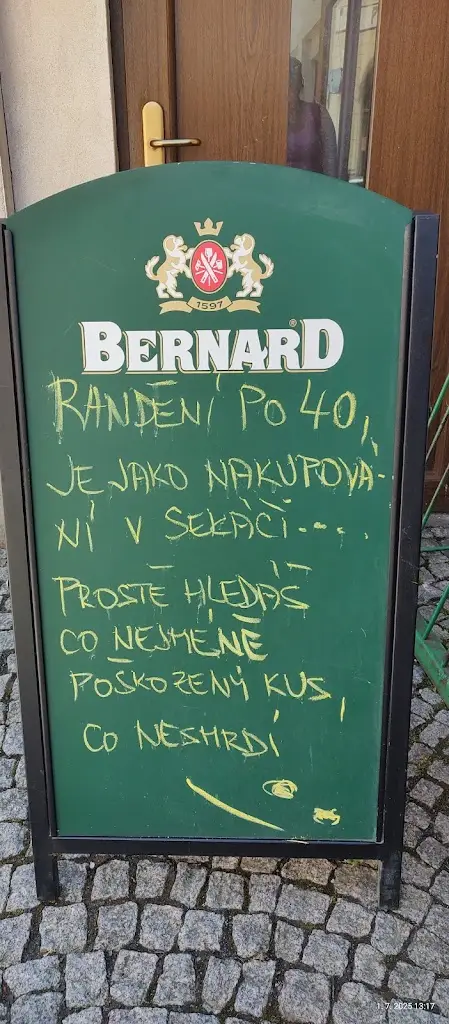 1597
BERNARD®
RANDĚNÍ PO 40,
JE JAKO NAKUPOVÁ-
NÍ V SEKÁČI....
PROSTĚ HLEDÁŠ
CO NEJMÉNĚ
POŠKOZENÝ KUS,
CO NESMRDÍ
1. 7. 2025 13:17